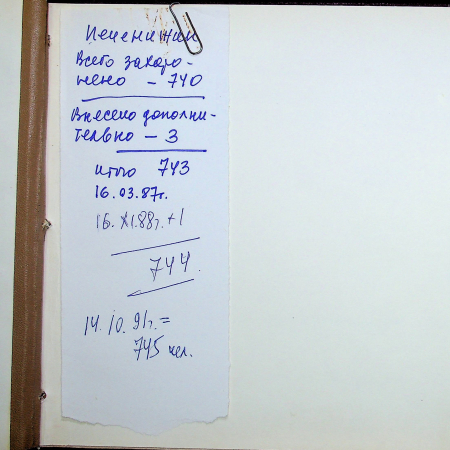 Печенижин
Всего захоро-
нено - 740
Внесено дополни-
тельно - 3
итого 743
16.03.87г.
16.XI.88г. +1
744.
14.10.91г. =
745 чел.